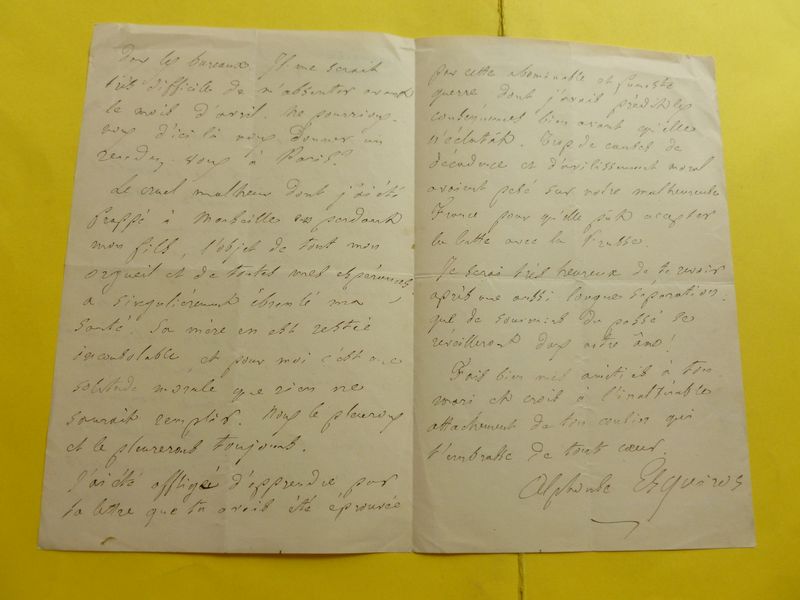 dans les bureaux. Il me serait
très difficile de m'absenter avant
le mois d'avril. Ne pourrions-
nous d'ici là nous donner un
rendez-vous à Paris?
Le cruel malheur dont j'ai été
frappé à Marseille en perdant
mon fils, l'objet de tout mon
orgueil et de toutes mes espérances,
a singulièrement ébranlé ma
santé. Sa mère en est restée
inconsolable, et pour moi c'est une
solitude morale que rien ne
saurait remplir. Nous le pleurons
et le pleurerons toujours.
J'ai été affligé d'apprendre par
ta lettre que tu avais été éprouvée
par cette abominable et funeste
guerre dont j'avais prédit les
conséquences bien avant qu'elle
n'éclatât. Trop de causes de
décadence et d'avilissement moral
avaient pesé sur notre malheureuse
France pour qu'elle pût accepter
la lutte avec la Prusse.
Je serai très heureux de te revoir
après une aussi longue séparation.
que de souvenirs du passé se
réveilleront dans notre âme!
Fais bien mes amitiés à ton
mari et crois à l'inaltérable
attachement de ton cousin qui
t'embrasse de tout cœur
Alphonse Esquiros